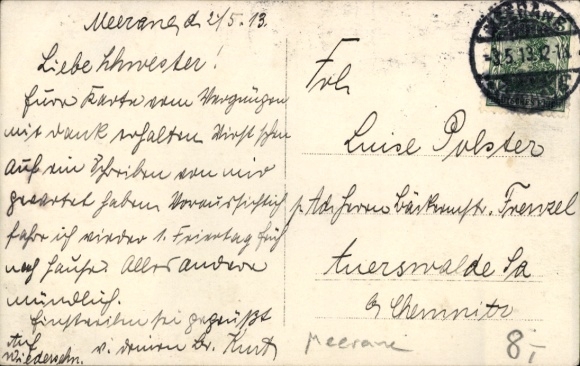 Meerane, d. 2/5.13.
Liebe Schwester!
Eure Karte vom Vergnügen
mit Dank erhalten. Wirst schon
auf ein Schreiben von mir
gewartet haben. Voraussichtlich
fahre ich wieder 1. Feiertag früh
nach Hause. Alles andere
mündlich.
Einstweilen sei gegrüßt
v. deinem Br. Kurt
Auf
Wiedersehn.
MEERANE
-3.5.13. 2-
Frl.
Luise Polster
p. Adr. Herrn Bäckermstr. Frenzel
Auerswalde Sa
b/ Chemnitz
Meerane
8,-